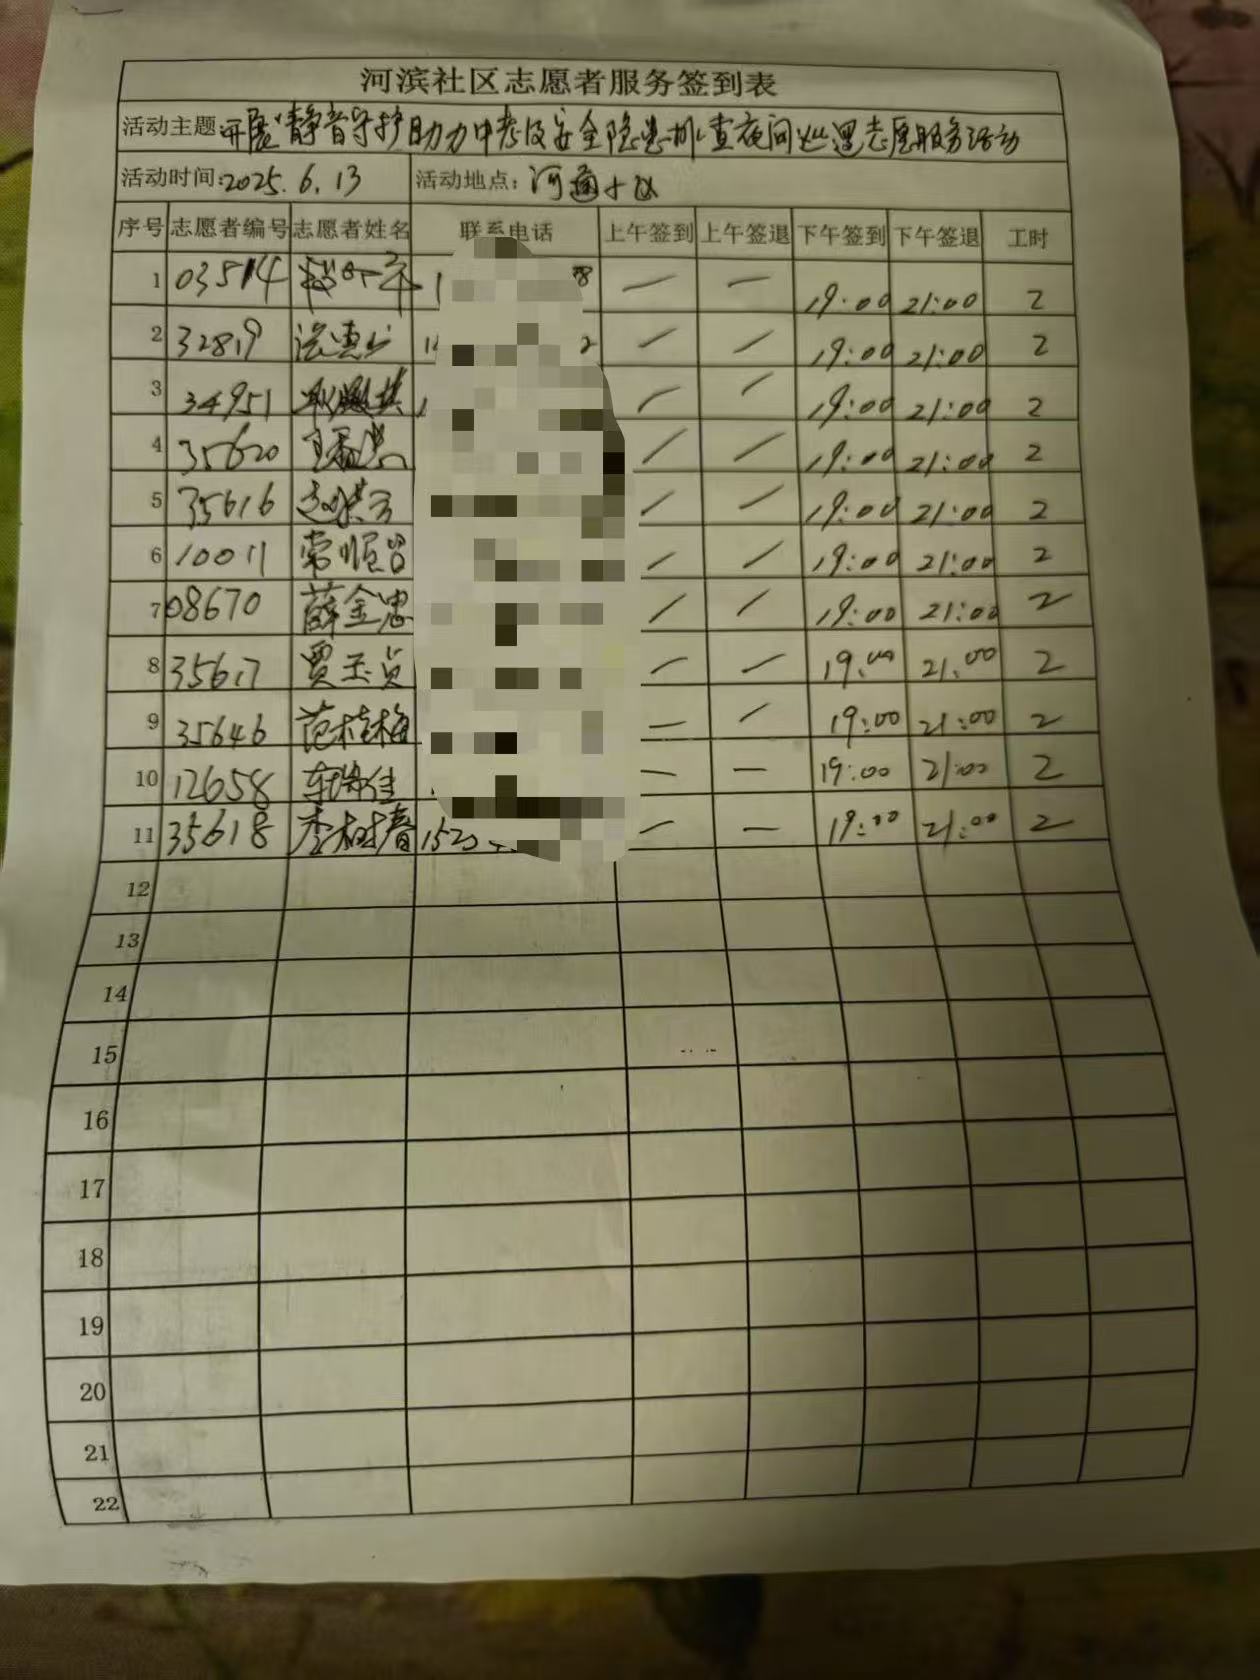 河滨社区志愿者服务签到表
活动主题:开展"静音守护助力中考及安全隐患排查夜间巡逻志愿服务活动
活动时间:2025.6.13 活动地点:河滨小区
序号 志愿者编号 志愿者姓名 联系电话 上午签到 上午签退 下午签到 下午签退 工时
1 03514 1 8 — — 19:00 21:00 2
2 32819 2 — — 19:00 21:00 2
3 34951 — — 19:00 21:00 2
4 35620 — — 19:00 21:00 2
5 35616 — — 19:00 21:00 2
6 10011 常顺吕 — — 19:00 21:00 2
7 08670 薛金忠 — — 19:00 21:00 2
8 35617 贾玉贞 — — 19:00 21:00 2
9 35646 范桂梅 — — 19:00 21:00 2
10 12658 — — 19:00 21:00 2
11 35618 李树春 152 — — 19:00 21:00 2
12
13
14
15
16
17
18
19
20
21
22